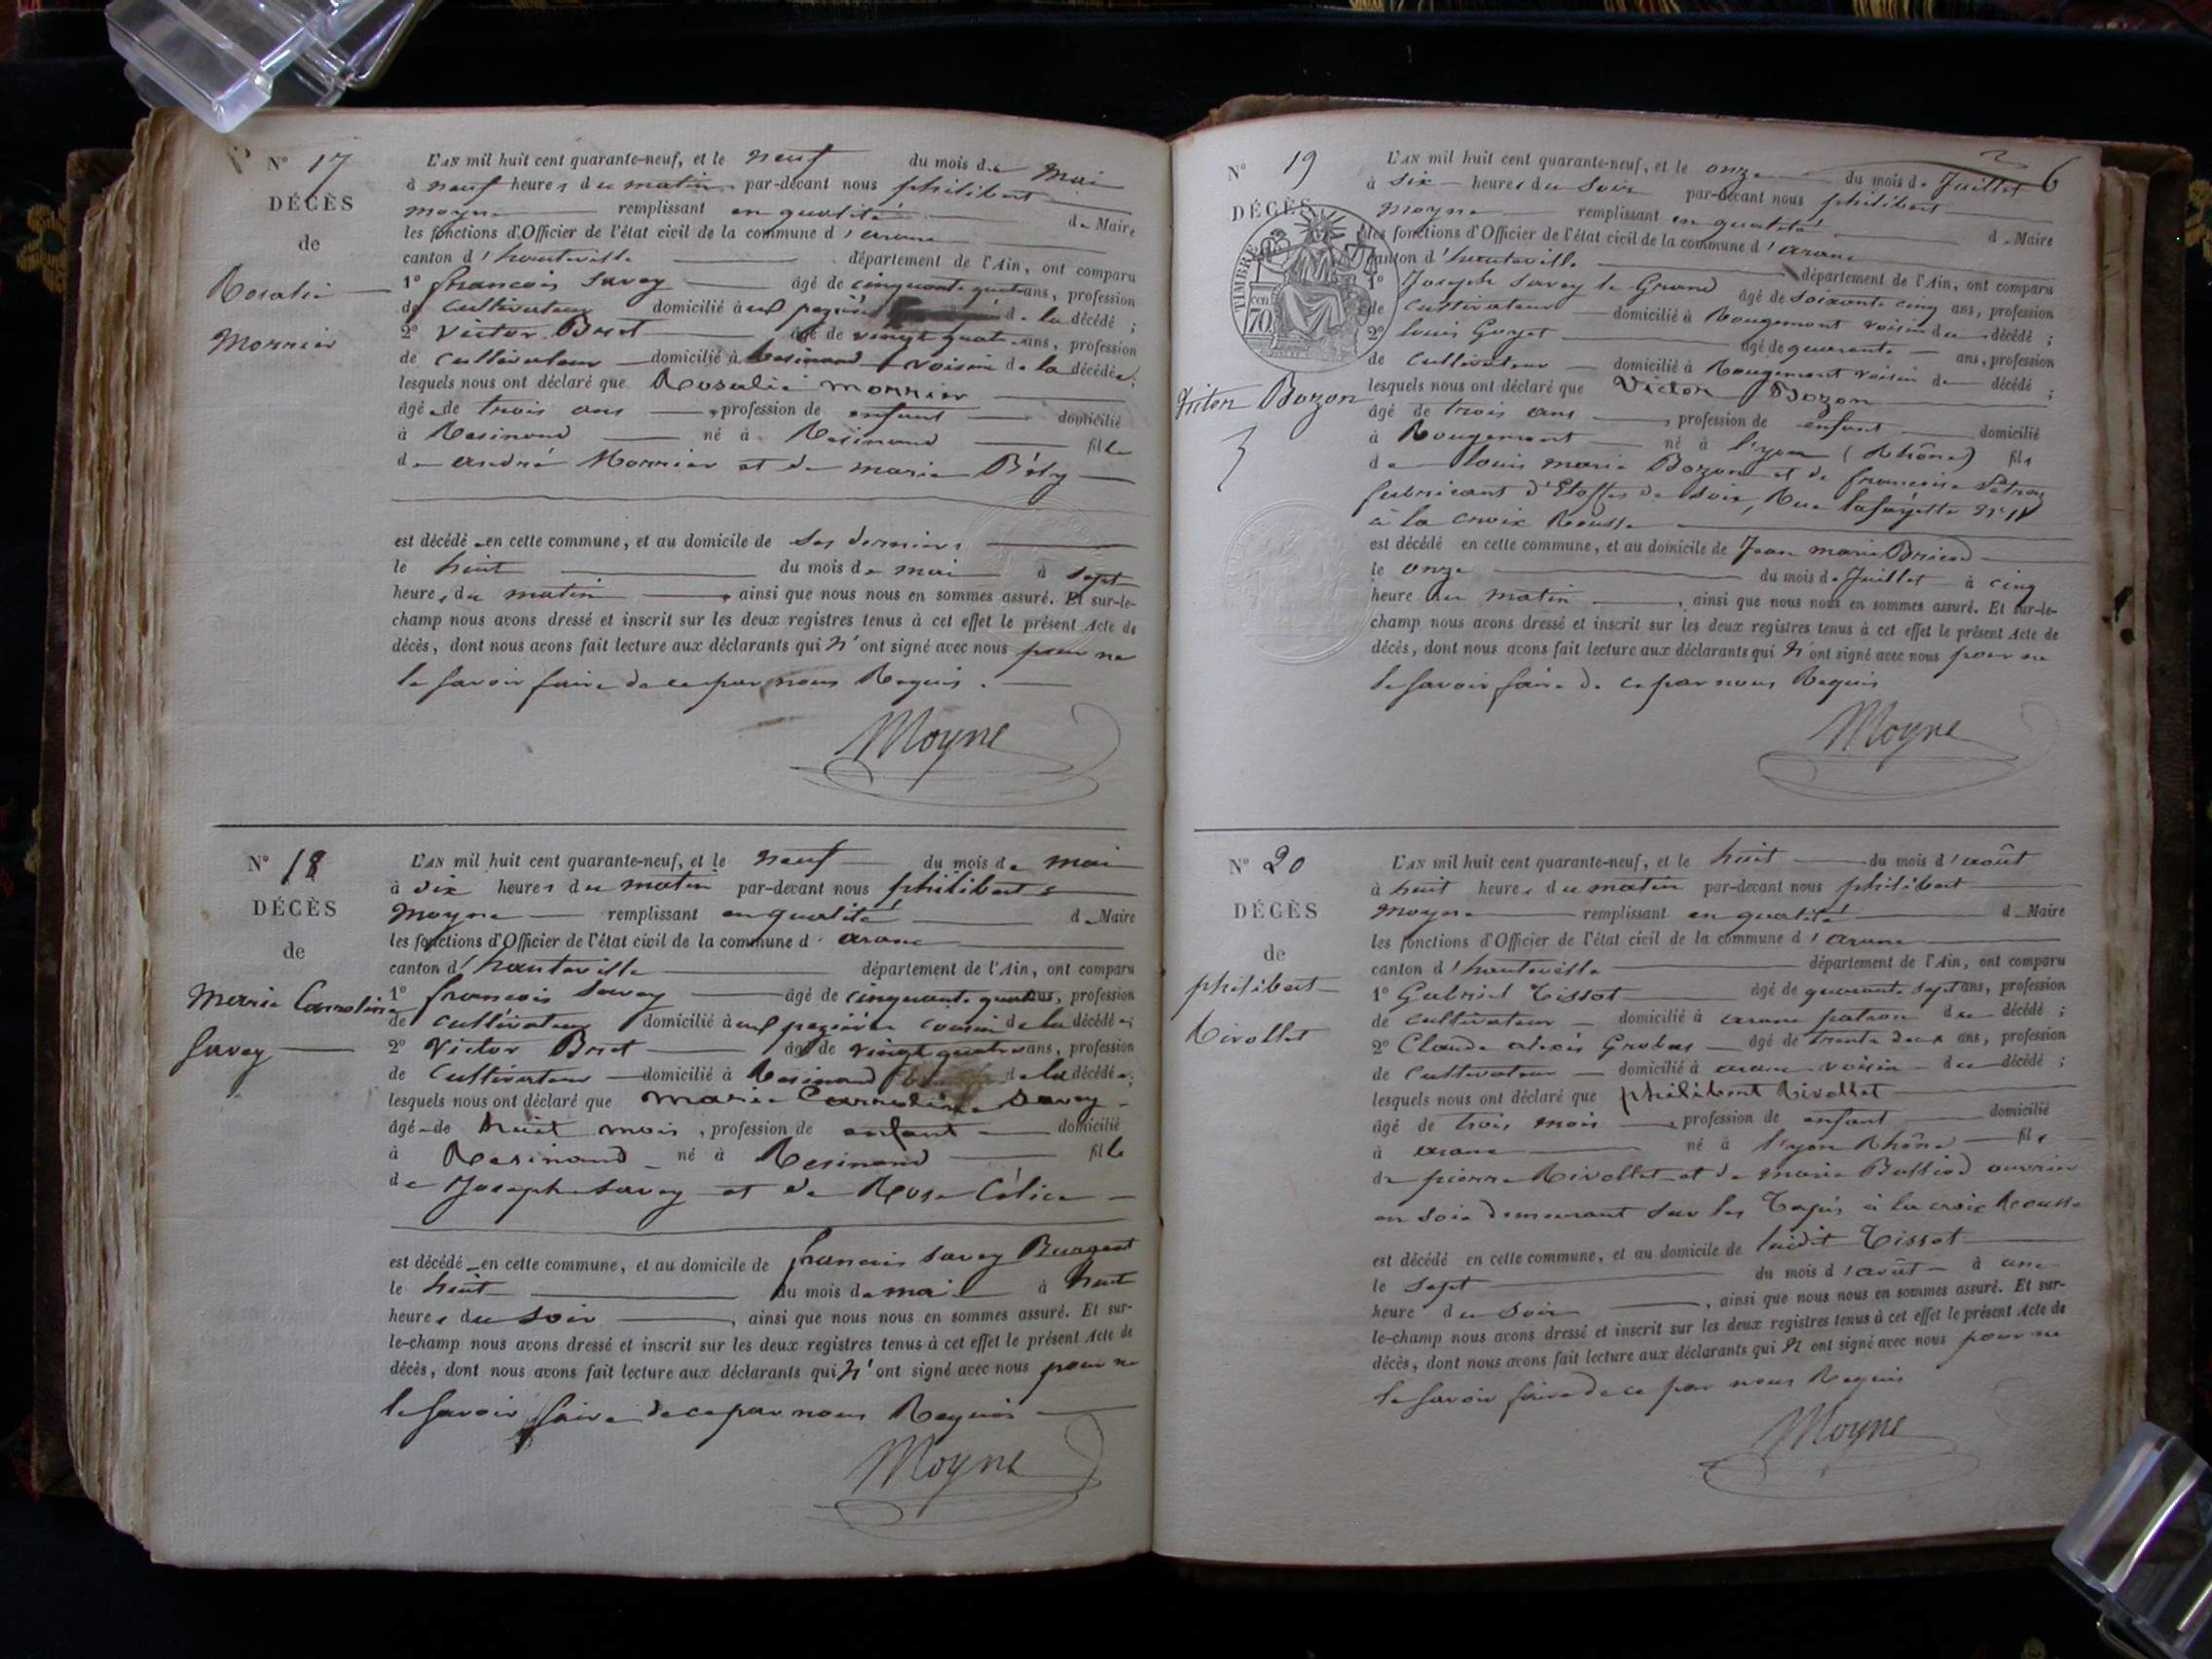 N° 17
DÉCÈS
de
Rosalie
Monnier
L'AN mil huit cent quarante-neuf, et le neuf du mois de Mai
à neuf heures du matin par-devant nous philibert
Moyne remplissant en qualité de Maire
les fonctions d'Officier de l'état civil de la commune d'arane
canton d'hauteville département de l'Ain, ont comparu
1° francois Savey âgé de cinquante quatre ans, profession
de Cultivateur domicilié à de la décédé ;
2° Victor Bret âgé de vingt quatre ans, profession
de Cultivateur domicilié à Resinand voisin de la décédée ;
lesquels nous ont déclaré que Rosalie monnier
âgé de trois ans , profession de enfant domicilié
à Resinand né à Resinand fille
de andré Monnier et de marie Bély
est décédé en cette commune, et au domicile de ses derniers
le huit du mois de mai à sept
heures du matin , ainsi que nous nous en sommes assuré. Et sur-le-
champ nous avons dressé et inscrit sur les deux registres tenus à cet effet le présent Acte de
décès, dont nous avons fait lecture aux déclarants qui n'ont signé avec nous pour ne
le savoir faire de ce par nous Requis.
Moyne
N° 18
DÉCÈS
de
Marie Carroline
Savey
L'AN mil huit cent quarante-neuf, et le neuf du mois de mai
à dix heures du matin par-devant nous philibert
Moyne remplissant en qualité d Maire
les fonctions d'Officier de l'état civil de la commune d'arane
canton d'hauteville département de l'Ain, ont comparu
1° francois Savey âgé de cinquante quatre ans, profession
de Cultivateur domicilié à cousin de la décédée ;
2° Victor Bret âgé de vingt quatre ans, profession
de Cultivateur domicilié à Resinand de la décédée ;
lesquels nous ont déclaré que marie Carroline Savey
âgé de huit mois , profession de enfant domicilié
à Resinand né à Resinand fille
de Joseph Savey et de Rose Célice
est décédé en cette commune, et au domicile de francois Savey Burgest
le huit du mois de mai à huit
heures du soir , ainsi que nous nous en sommes assuré. Et sur-
le-champ nous avons dressé et inscrit sur les deux registres tenus à cet effet le présent Acte de
décès, dont nous avons fait lecture aux déclarants qui n'ont signé avec nous pour ne
le savoir faire de ce par nous Requis
Moyne
6
N° 19
DÉCÈS
TIMBRE
70
Victor Bozon
L'AN mil huit cent quarante-neuf, et le onze du mois de Juillet
à six heures du soir par-devant nous philibert
Moyne remplissant en qualité d Maire
les fonctions d'Officier de l'état civil de la commune d'arane
canton d'hauteville département de l'Ain, ont comparu
1° Joseph Savey le Grand âgé de soixante cinq ans, profession
de Cultivateur domicilié à Rougemont voisin du décédé ;
2° louis Goyet âgé de quarante ans, profession
de Cultivateur domicilié à Rougemont voisin du décédé ;
lesquels nous ont déclaré que Victor Bozon
âgé de trois ans , profession de enfant domicilié
à Rougemont né à lyon (Rhône) fils
de louis marie Bozon et de francoise
fabricant d'Etoffes de soie, Rue lafayette
à la croix Rousse
est décédé en cette commune, et au domicile de Jean marie Briend
le onze du mois de Juillet à cinq
heure du matin , ainsi que nous nous en sommes assuré. Et sur-le-
champ nous avons dressé et inscrit sur les deux registres tenus à cet effet le présent Acte de
décès, dont nous avons fait lecture aux déclarants qui n'ont signé avec nous pour ne
le savoir faire de ce par nous Requis
Moyne
N° 20
DÉCÈS
de
philibert
Rivollet
L'AN mil huit cent quarante-neuf, et le huit du mois d'août
à huit heures du matin par-devant nous philibert
Moyne remplissant en qualité d Maire
les fonctions d'Officier de l'état civil de la commune d'arane
canton d'hauteville département de l'Ain, ont comparu
1° Gabriel Tissot âgé de quarante sept ans, profession
de Cultivateur domicilié à arane patron du décédé ;
2° Claude alexis Grobas âgé de trente deux ans, profession
de Cultivateur domicilié à arane voisin du décédé ;
lesquels nous ont déclaré que philibert Rivollet
âgé de trois mois , profession de enfant domicilié
à arane né à lyon Rhône fils
de pierre Rivollet et de marie Bussiod ouvrier
en soie demeurant sur les Tapis à la croix Rousse
est décédé en cette commune, et au domicile de ludit Tissot
le sept du mois d'août à une
heure du soir , ainsi que nous nous en sommes assuré. Et sur-
le-champ nous avons dressé et inscrit sur les deux registres tenus à cet effet le présent Acte de
décès, dont nous avons fait lecture aux déclarants qui n'ont signé avec nous pour ne
le savoir faire de ce par nous Requis
Moyne